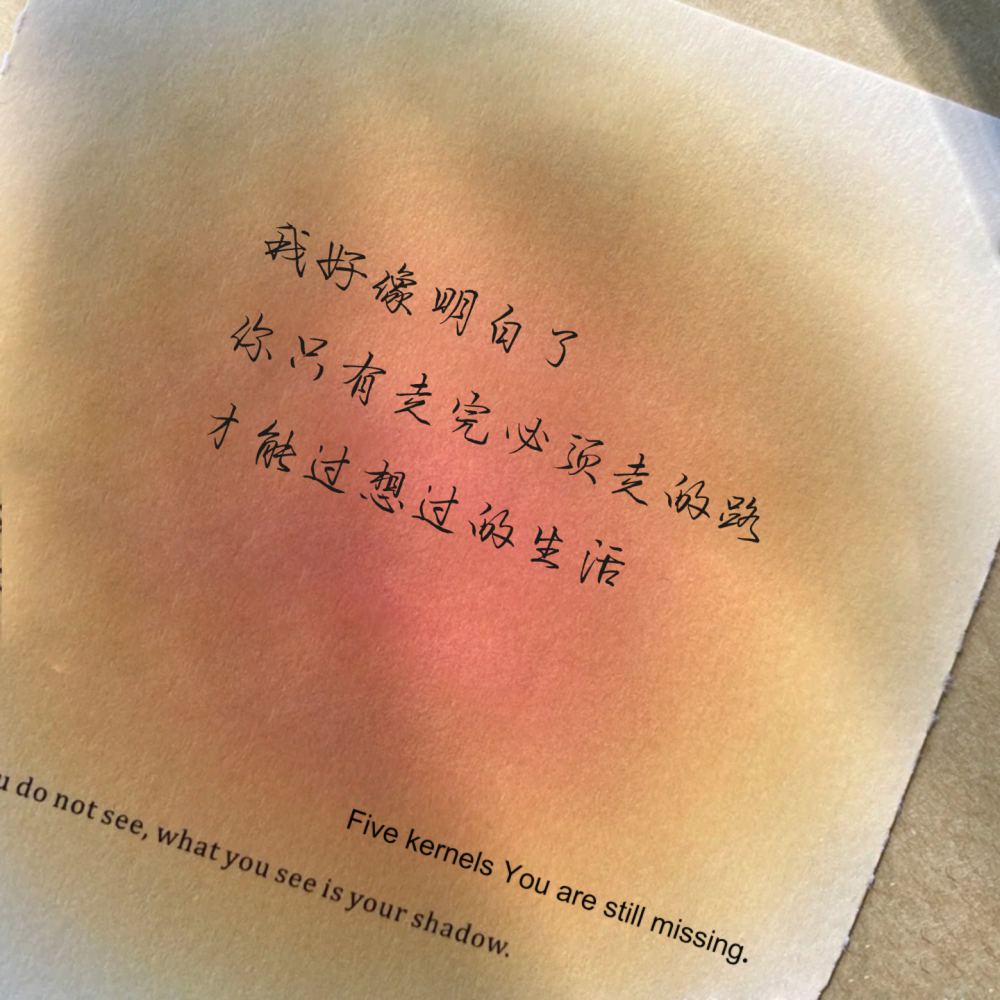 我好像明白了
你只有走完必须走的路
才能过想过的生活
Five kernels You are still missing.
do not see, what you see is your shadow.